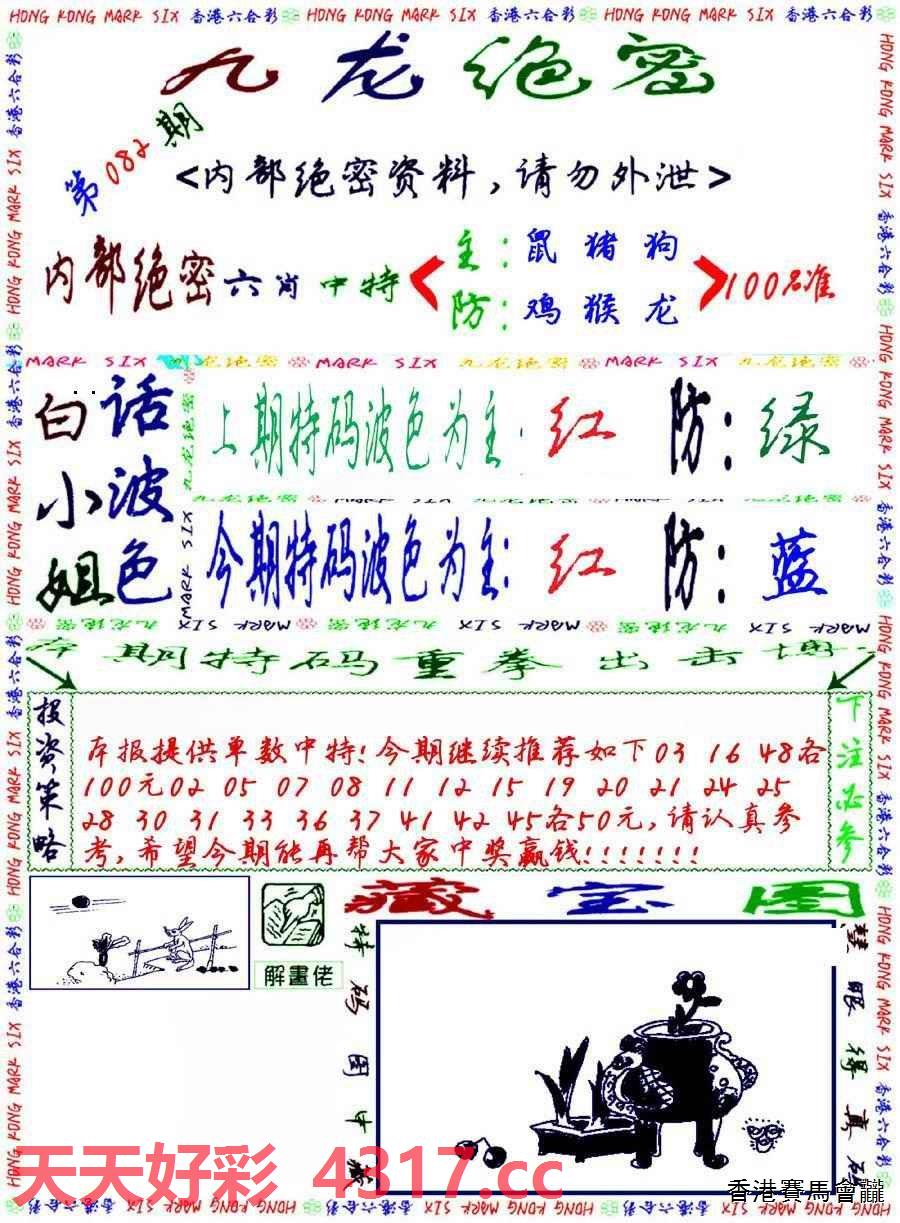 HONG KONG MARK SIX 香港六合彩 HONG KONG MARK SIX 香港六合彩 HONG KONG MARK SIX 香港六合彩
九龙绝密
第082期
<内部绝密资料，请勿外泄>
内部绝密六肖中特
主：鼠 猪 狗
防：鸡 猴 龙
100%准
MARK SIX 九龙绝密 MARK SIX 九龙绝密 MARK SIX 九龙绝密
白话
小波
姐色
上期特码波色为主：红 防：绿
今期特码波色为主：红 防：蓝
本期特码重拳出击博
投资策略
本报提供单数中特！今期继续推荐如下03 16 48各
100元02 05 07 08 11 12 15 19 20 21 24 25
28 30 31 33 36 37 41 42 45各50元，请认真参
考，希望今期能再帮大家中奖赢钱！！！！！！！
下注必参
藏宝图
解畫佬
特码图中藏
慧眼得真码
天天好彩 4317.cc
香港賽馬會